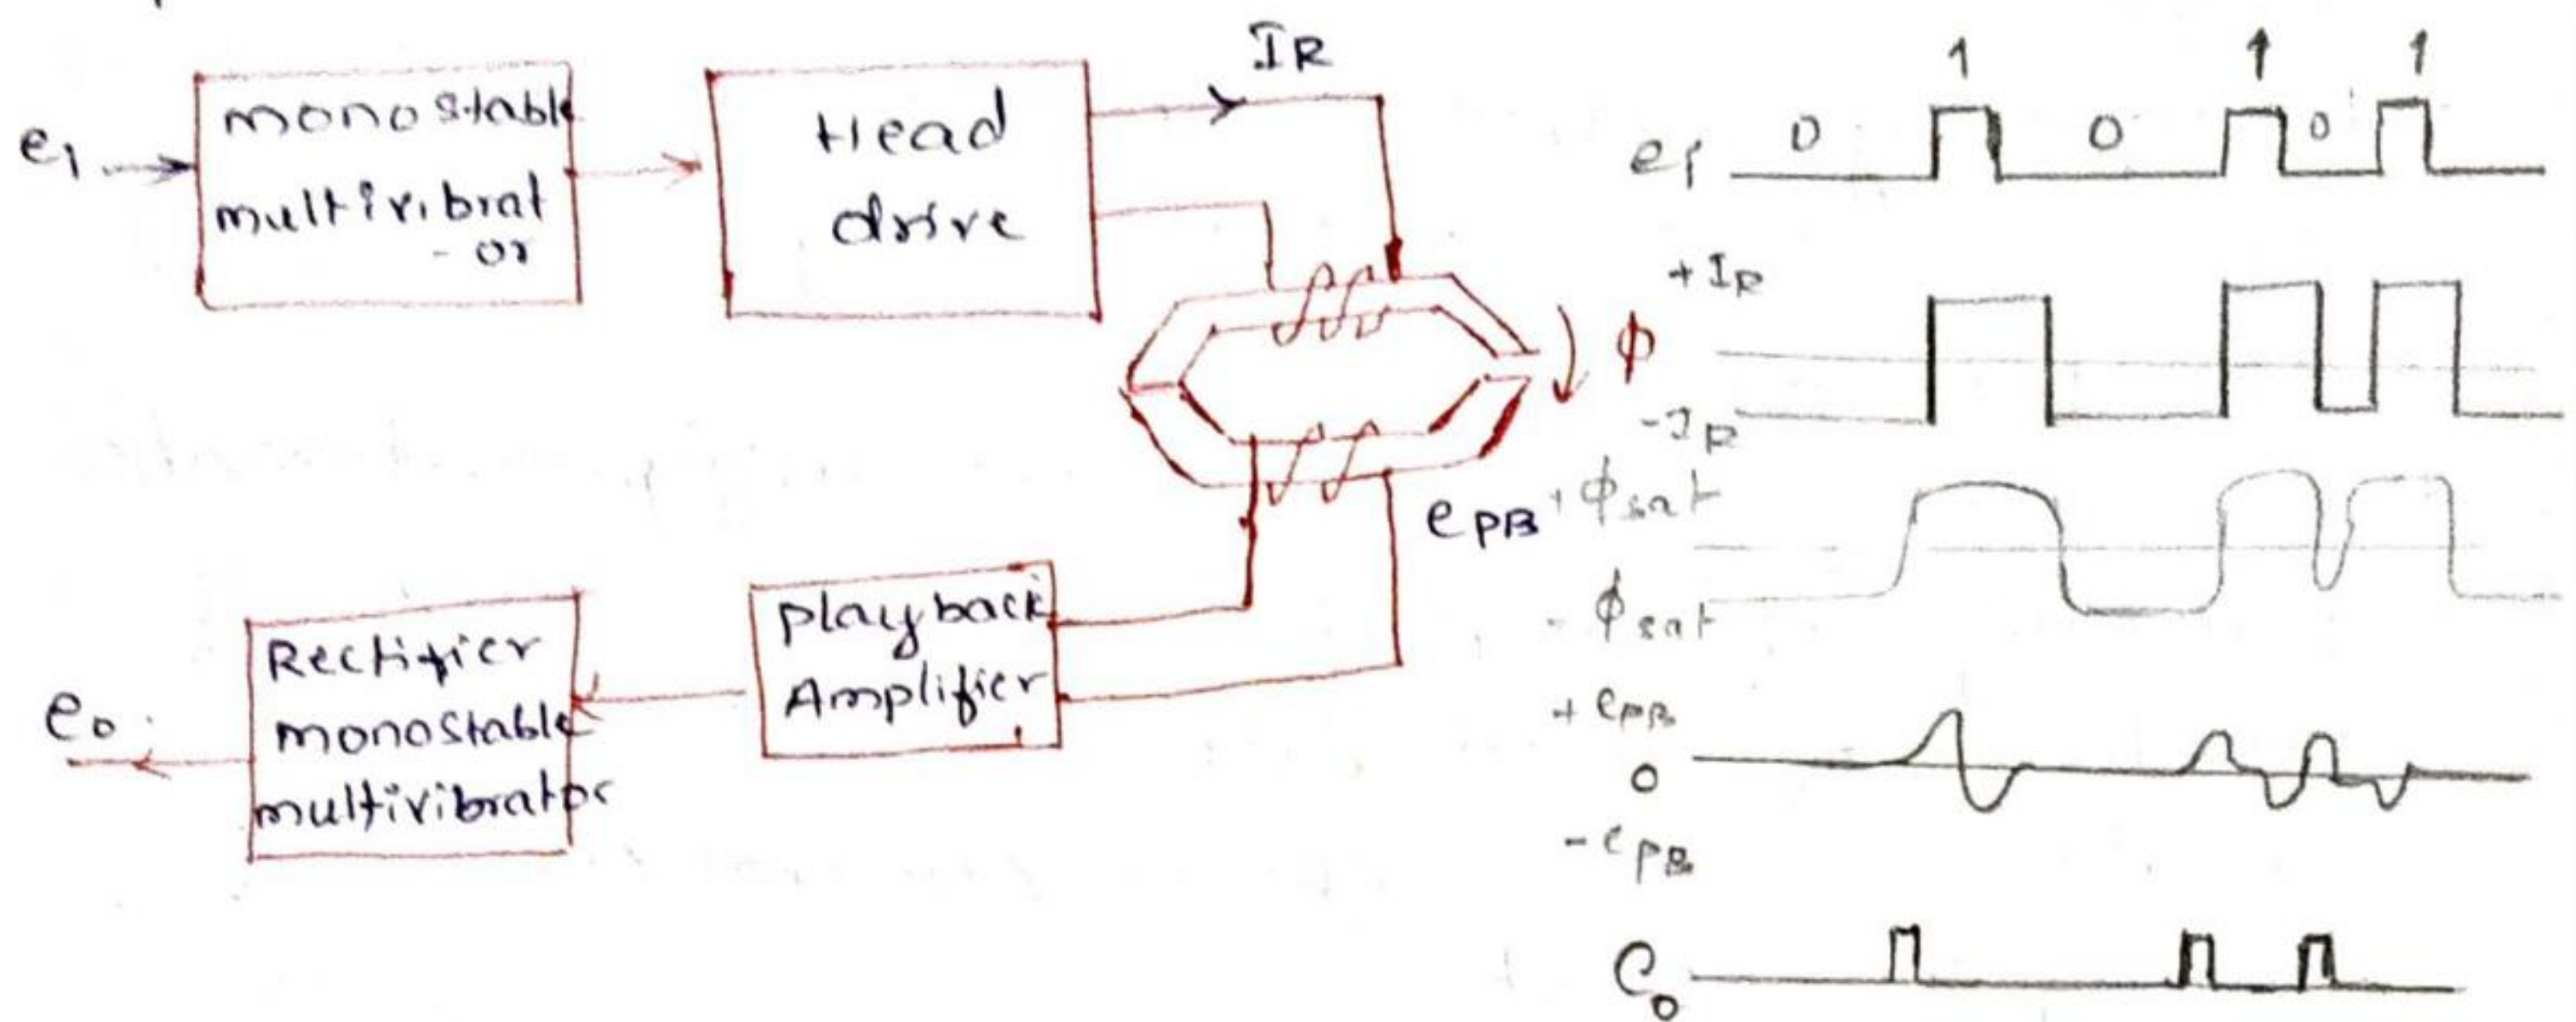 e1
monostable
multivibrat
- or
Head
drive
IR
ϕ
ePB
Playback
Amplifier
Rectifier
monostable
multivibrator
eo
1 1 1
0 0 0
e1
+IR
-IR
+ϕsat
-ϕsat
+ePB
0
-ePB
eo